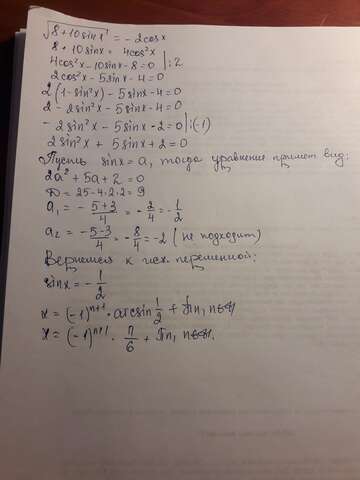 √(8 + 10 sin x) = - 2cosx
8 + 10sinx = 4cos²x
4cos²x - 10sinx - 8 = 0 |:2
2cos²x - 5sinx - 4 = 0
2(1 - sin²x) - 5sinx - 4 = 0
2 - 2sin²x - 5sinx - 4 = 0
- 2sin²x - 5sinx - 2 = 0 |:(-1)
2sin²x + 5sinx + 2 = 0
Пусть sinx = a, тогда уравнение примет вид:
2a² + 5a + 2 = 0
D = 25 - 4·2·2 = 9
a₁ = (-5+3)/4 = -2/4 = -1/2
a₂ = (-5-3)/4 = -8/4 = -2 (не подходит)
Вернемся к исх. переменной:
sinx = -1/2
x = (-1)ⁿ⁺¹ · arcsin 1/2 + πn, n∈
x = (-1)ⁿ⁺¹ · π/6 + πn, n∈